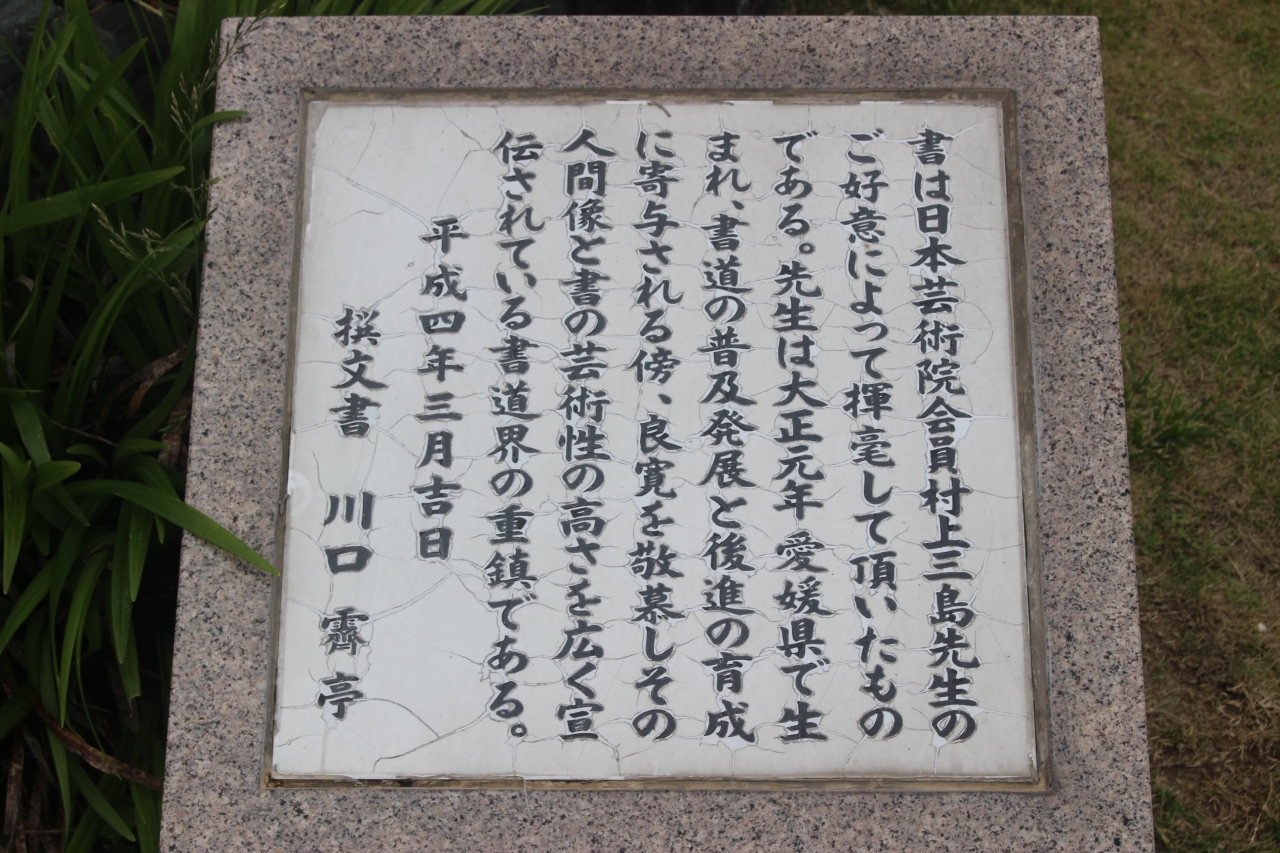 書は日本芸術院会員村上三島先生の
ご好意によって揮毫して頂いたもの
である。先生は大正元年 愛媛県で生
まれ、書道の普及発展と後進の育成
に寄与される傍、良寛を敬慕しその
人間像と書の芸術性の高さを広く宣
伝されている書道界の重鎮である。
平成四年三月吉日
撰文書 川口 霽亭